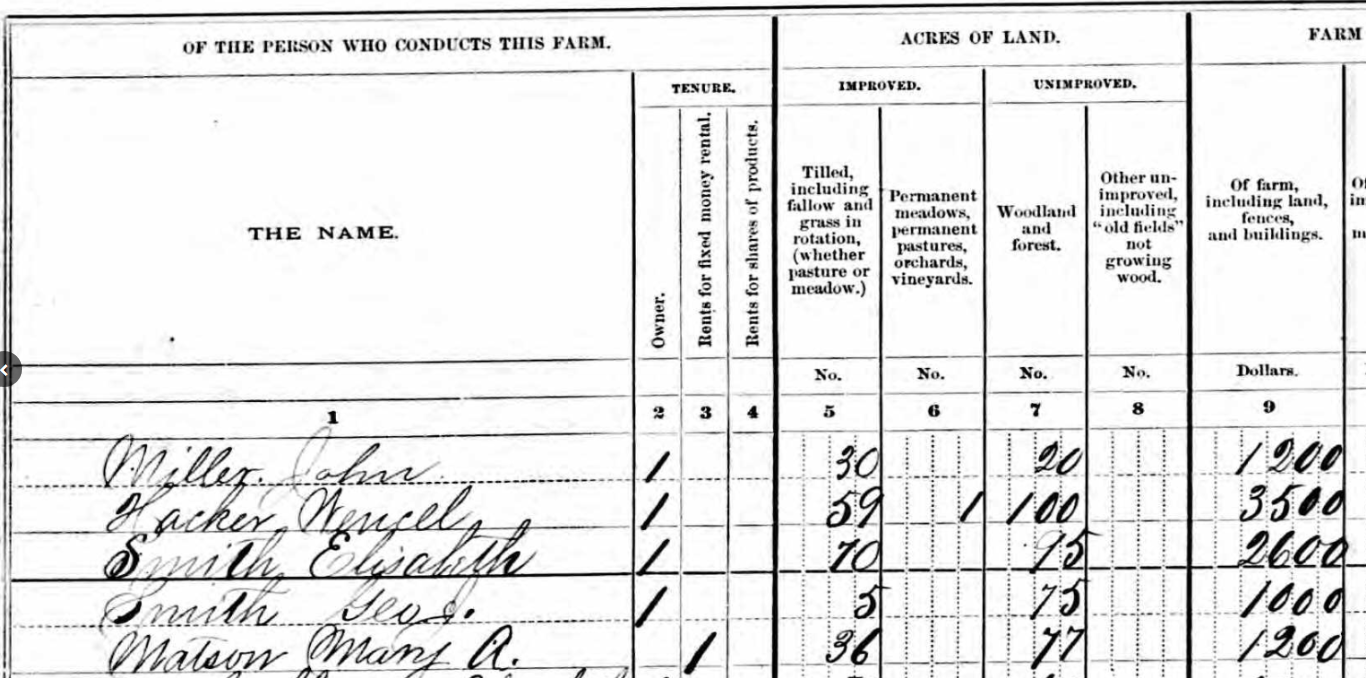 OF THE PERSON WHO CONDUCTS THIS FARM.
ACRES OF LAND.
FARM
TENURE.
IMPROVED.
UNIMPROVED.
THE NAME.
Owner.
Rents for fixed money rental.
Rents for shares of products.
Tilled,
including
fallow and
grass in
rotation,
(whether
pasture or
meadow.)
Permanent
meadows,
permanent
pastures,
orchards,
vineyards.
Woodland
and
forest.
Other un-
improved,
including
"old fields"
not
growing
wood.
Of farm,
including land,
fences,
and buildings.
No. No. No. No. Dollars.
1 2 3 4 5 6 7 8 9
Miller John 1 30 20 1200
Hacker, Wencel, 1 59 1 100 3500
Smith, Elisabeth 1 70 95 2600
Smith Geo J. 1 5 75 1000
Matson Mary A. 1 36 77 1200